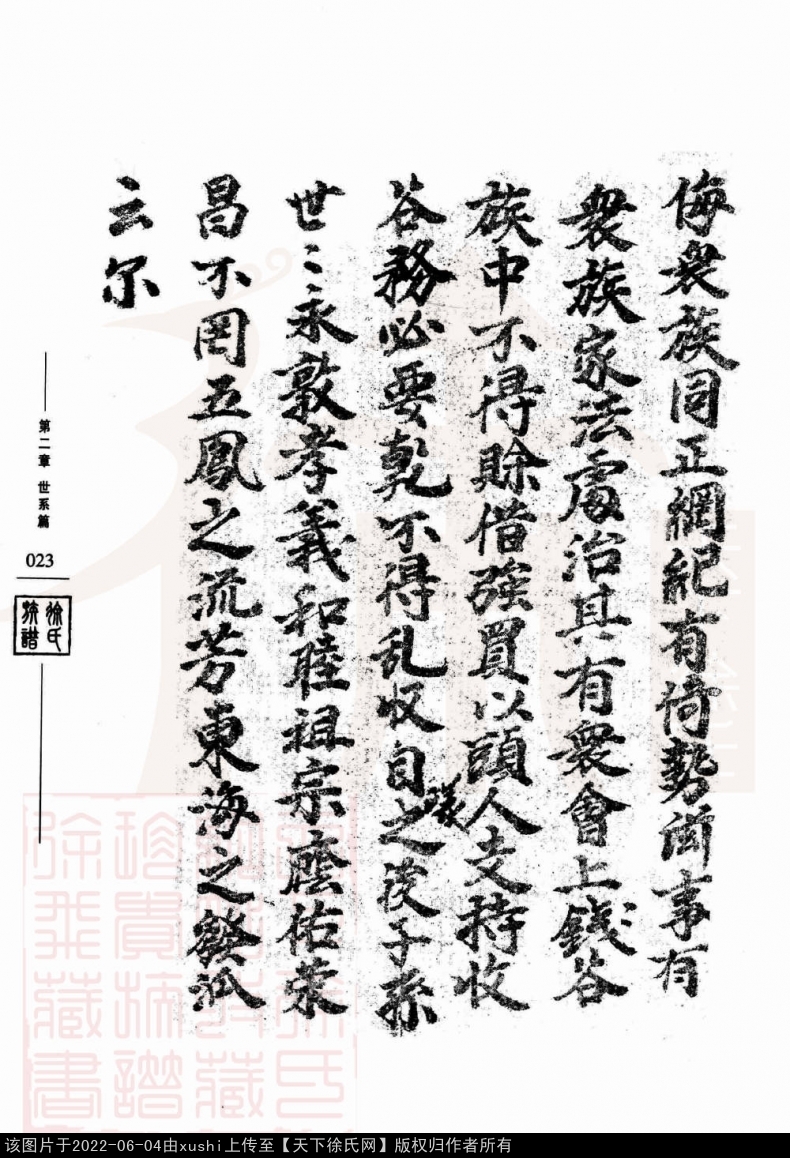 侮衆族同正綱紀有倚勢㫁事有
衆族家法處治具有衆會上錢谷
族中不得賒借強買以頭人支持收
谷務必要乾不得乱収自議之後子孫
世〻永敦孝義和睦祖宗廕佑荣
昌不罔五鳳之流芳東海之發派
云尔
第二章 世系篇
023
徐氏
族譜
该图片于2022-06-04由xushi上传至【天下徐氏网】版权归作者所有